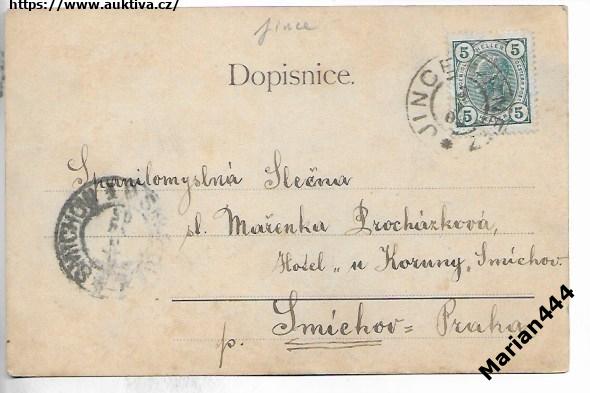 https://www.auktiva.cz/
Jince
Dopisnice.
5 HELLER 5
5 5
JINCE
Spanilomyslná Slečna
sl. Mařenka Procházková,
Hotel „u Koruny" Smíchov.
p. Smíchov = Praha
SMICHOV
Marian444